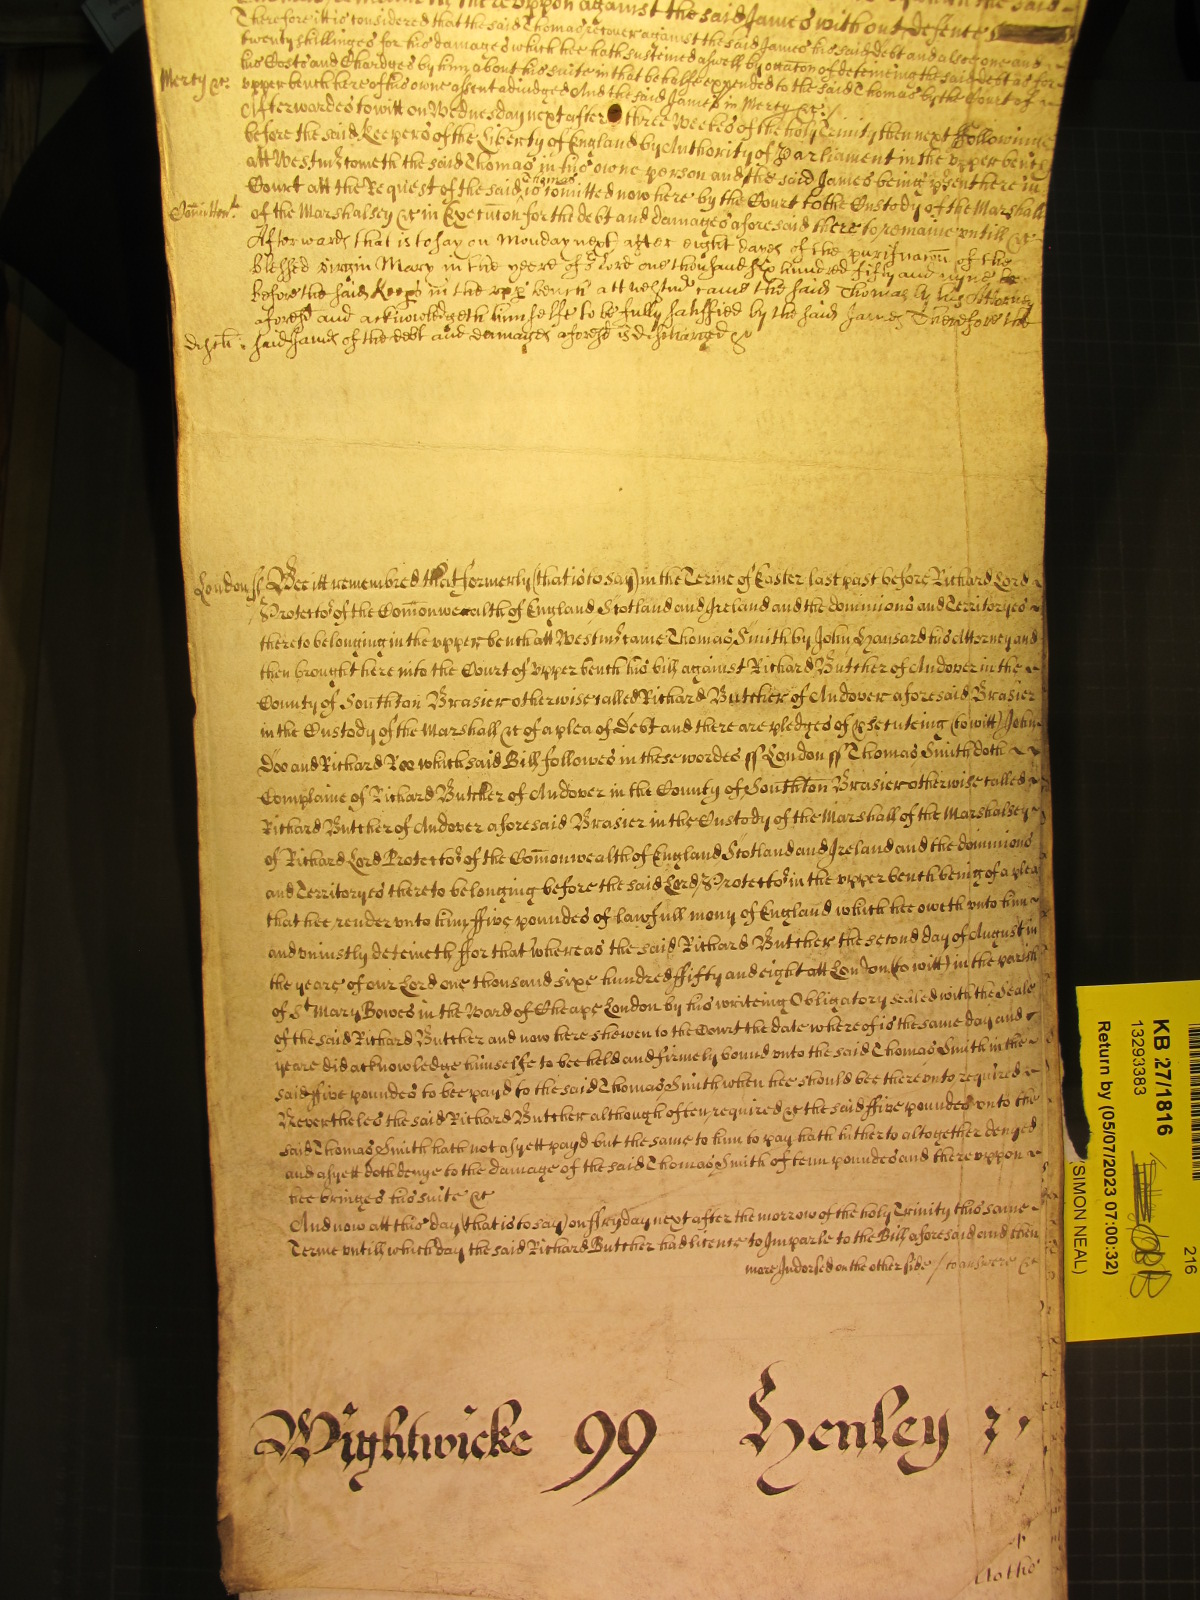 thereuppon against the said James without defence
Therefore itt is considered that the said Thomas recover against the said James his said debt and alsoe one and
twenty shillinges for his damages which hee hath susteined aswell by occacion of deteineing the said debt as for
his Costs and Chardges by him about his suite in that behalfe expended to the said Thomas by the Court of
Mercy &c. upper bench here of his owne assent adiudged And the said James in Mercy &c /
Afterwardes to witt on Wednesday next after three weekes of the holy Trinity then next Followinge
before the said Keepers of the Liberty of England by Authority of Parliament in the upper bench
att Westmr cometh the said Thomas in his owne person and the said James being p'sent here in
Court att the Request of the said Thomas is Comitted now here by the Court to the Custody of the Marshall
Comittitr. of the Marshalsey &c in Execucon for the debt and damages aforesaid there to remaine untill &c
Afterwards that is to say on Monday next after eight dayes of the purificacon of the
blessed virgin Mary in the yeere of or Lord one thousand six hundred fifty and nyne
before the said Keeps in the upp bench att Westmr came the said Thomas by his Attorney
aforesd and acknowledgeth himselfe to be fully satisfied by the said James Therefore the
said James of the debt and damages aforesd is discharged &c
London ss Bee itt remembred that formerly (that is to say) in the Terme of Easter last past before Richard Lord
Protector of the Comonwealth of England Scotland and Ireland and the dominions and Territoryes
thereto belonging in the upper bench att Westmr came Thomas Smith by John Hansard his Attorney and
then brought here into the Court of upper bench his bill against Richard Butcher of Andover in the
County of Southton Brasier otherwise called Richard Butcher of Andover aforesaid Brasier
in the Custody of the Marshall &c of a plea of Debt and there are pledges of p'secuteing (to witt) John
Doo and Richard Roo which said Bill followes in these wordes ss London ss Thomas Smith doth
Complaine of Richard Butcher of Andover in the County of Southton Brasier otherwise called
Richard Butcher of Andover aforesaid Brasier in the Custody of the Marshall of the Marshalsey
of Richard Lord Protector of the Comonwealth of England Scotland and Ireland and the dominions
and Territoryes thereto belonging before the said Lord Protector in the upper bench being of a plea
that hee render unto him ffive poundes of lawfull mony of England which hee oweth unto him
and uniustly deteineth ffor that whereas the said Richard Butcher the second day of August in
the yeare of our Lord one thousand sixe hundred ffifty and eight att London (to witt) in the parish
of St Mary Bowes in the Ward of Cheape London by his writeing Obligatory sealed with the Seale
of the said Richard Butcher and now here shewen to the Court the date whereof is the same day and
yeare did acknowledge himselfe to bee held and firmely bound unto the said Thomas Smith in the
said ffive poundes to bee payd to the said Thomas Smith when hee should bee thereunto required
Neverthelesthe said Richard Butcher although often required &c the said ffive poundes unto the
said Thomas Smith hath not as yett payd but the same to him to pay hath hitherto altogether denyed
and as yett doth denye to the damage of the said Thomas Smith of tenn poundes and thereuppon
hee bringes his suite &c
And now att this day (that is to say) on ffryday next after the morrow of the holy Trinity this same
Terme untill which day the said Richard Butcher had licence to Imparle to the Bill aforesaid and then
more Indorsed on the other side / to answere &c
Wightwicke 99 Henley
KB 27/1816
13293383
Return by (05/07/2023 07:00:32)
(SIMON NEAL)
216